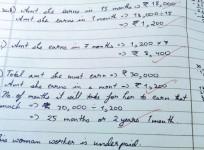 Amt she earns in 15 months => ₹ 18,000
Amt she earns in 1 month => 18,000 ÷ 15
=> ₹ 1,200
Amt she earns in 7 months => 1,200 x 7
=> ₹ 8,400
Total amt she must earn => ₹ 30,000
Amt she earns in a month => ₹ 1,200
No. of months it will take for her to earn that
much => 30,000 ÷ 1,200
=> 25 months or 2 years 1 month
woman worker is underpaid